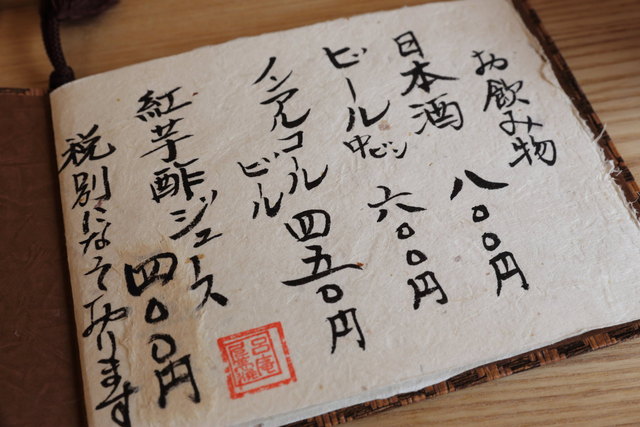 お飲み物
日本酒 八〇〇円
ビール 中ビン 六〇〇円
ノンアルコール
ビール 四五〇円
紅芋酢ジュース 四〇〇円
税別になっております